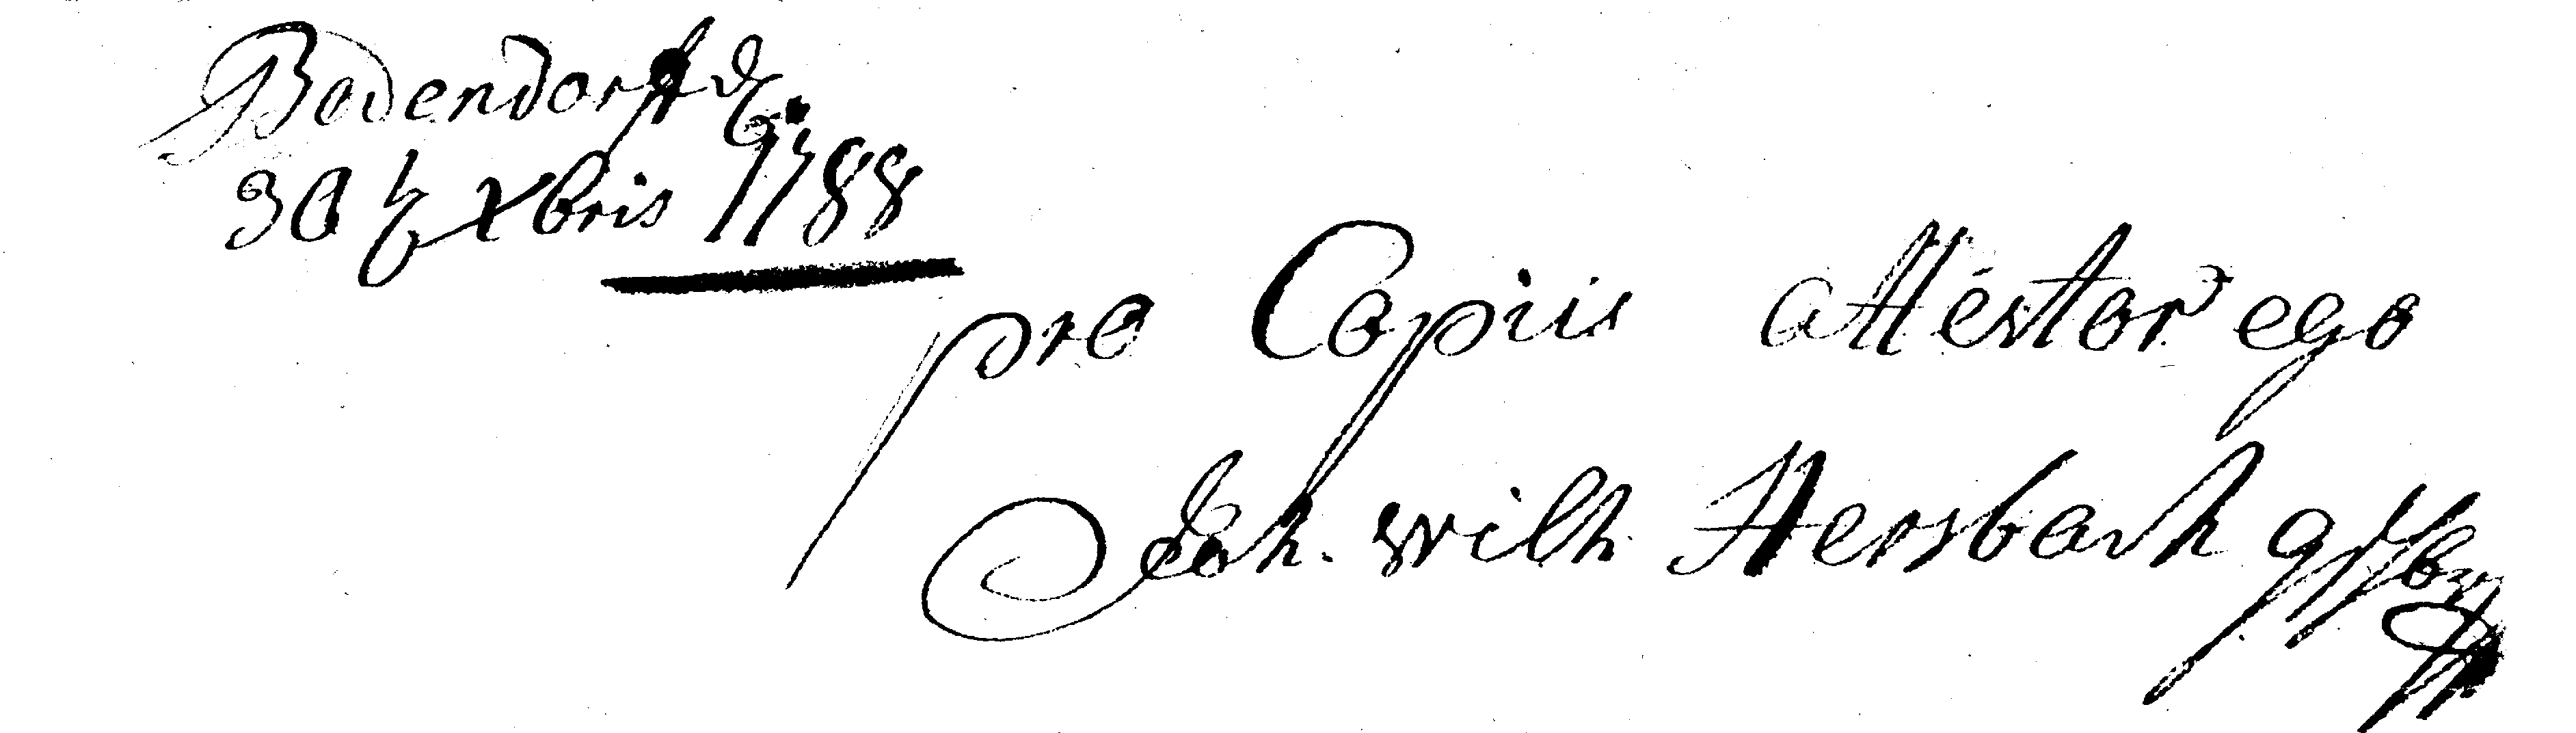 Bodendorff d.
30t Xbris 1788
pro Copiis attestor ego
Joh. wilh. Hersbach